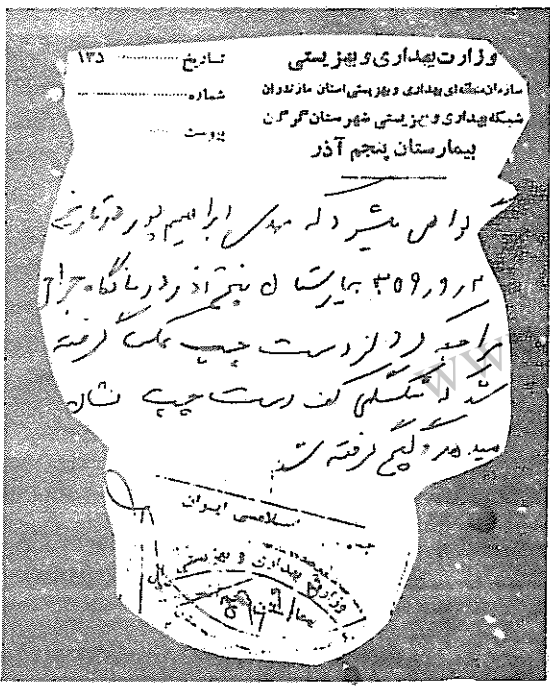 وزارت بهداری و بهزیستی
تاریخ ........ ۱۳۵
سازمان منطقه‌ای بهداری و بهزیستی استان مازندران
شماره ........
شبکه بهداری و بهزیستی شهرستان گرگان
پیوست ....
بیمارستان پنجم آذر
گواهی میشود که مهدی ابراهیم پور در تاریخ
بیمارستان پنجم آذر درمانگاه جراحی
مراجعه کرد از دست چپ عکس گرفته
شد که شکستگی کف دست چپ نشان
میدهد و گچ گرفته شد
اسلامی ایران
وزارت بهداری و بهزیستی
WW